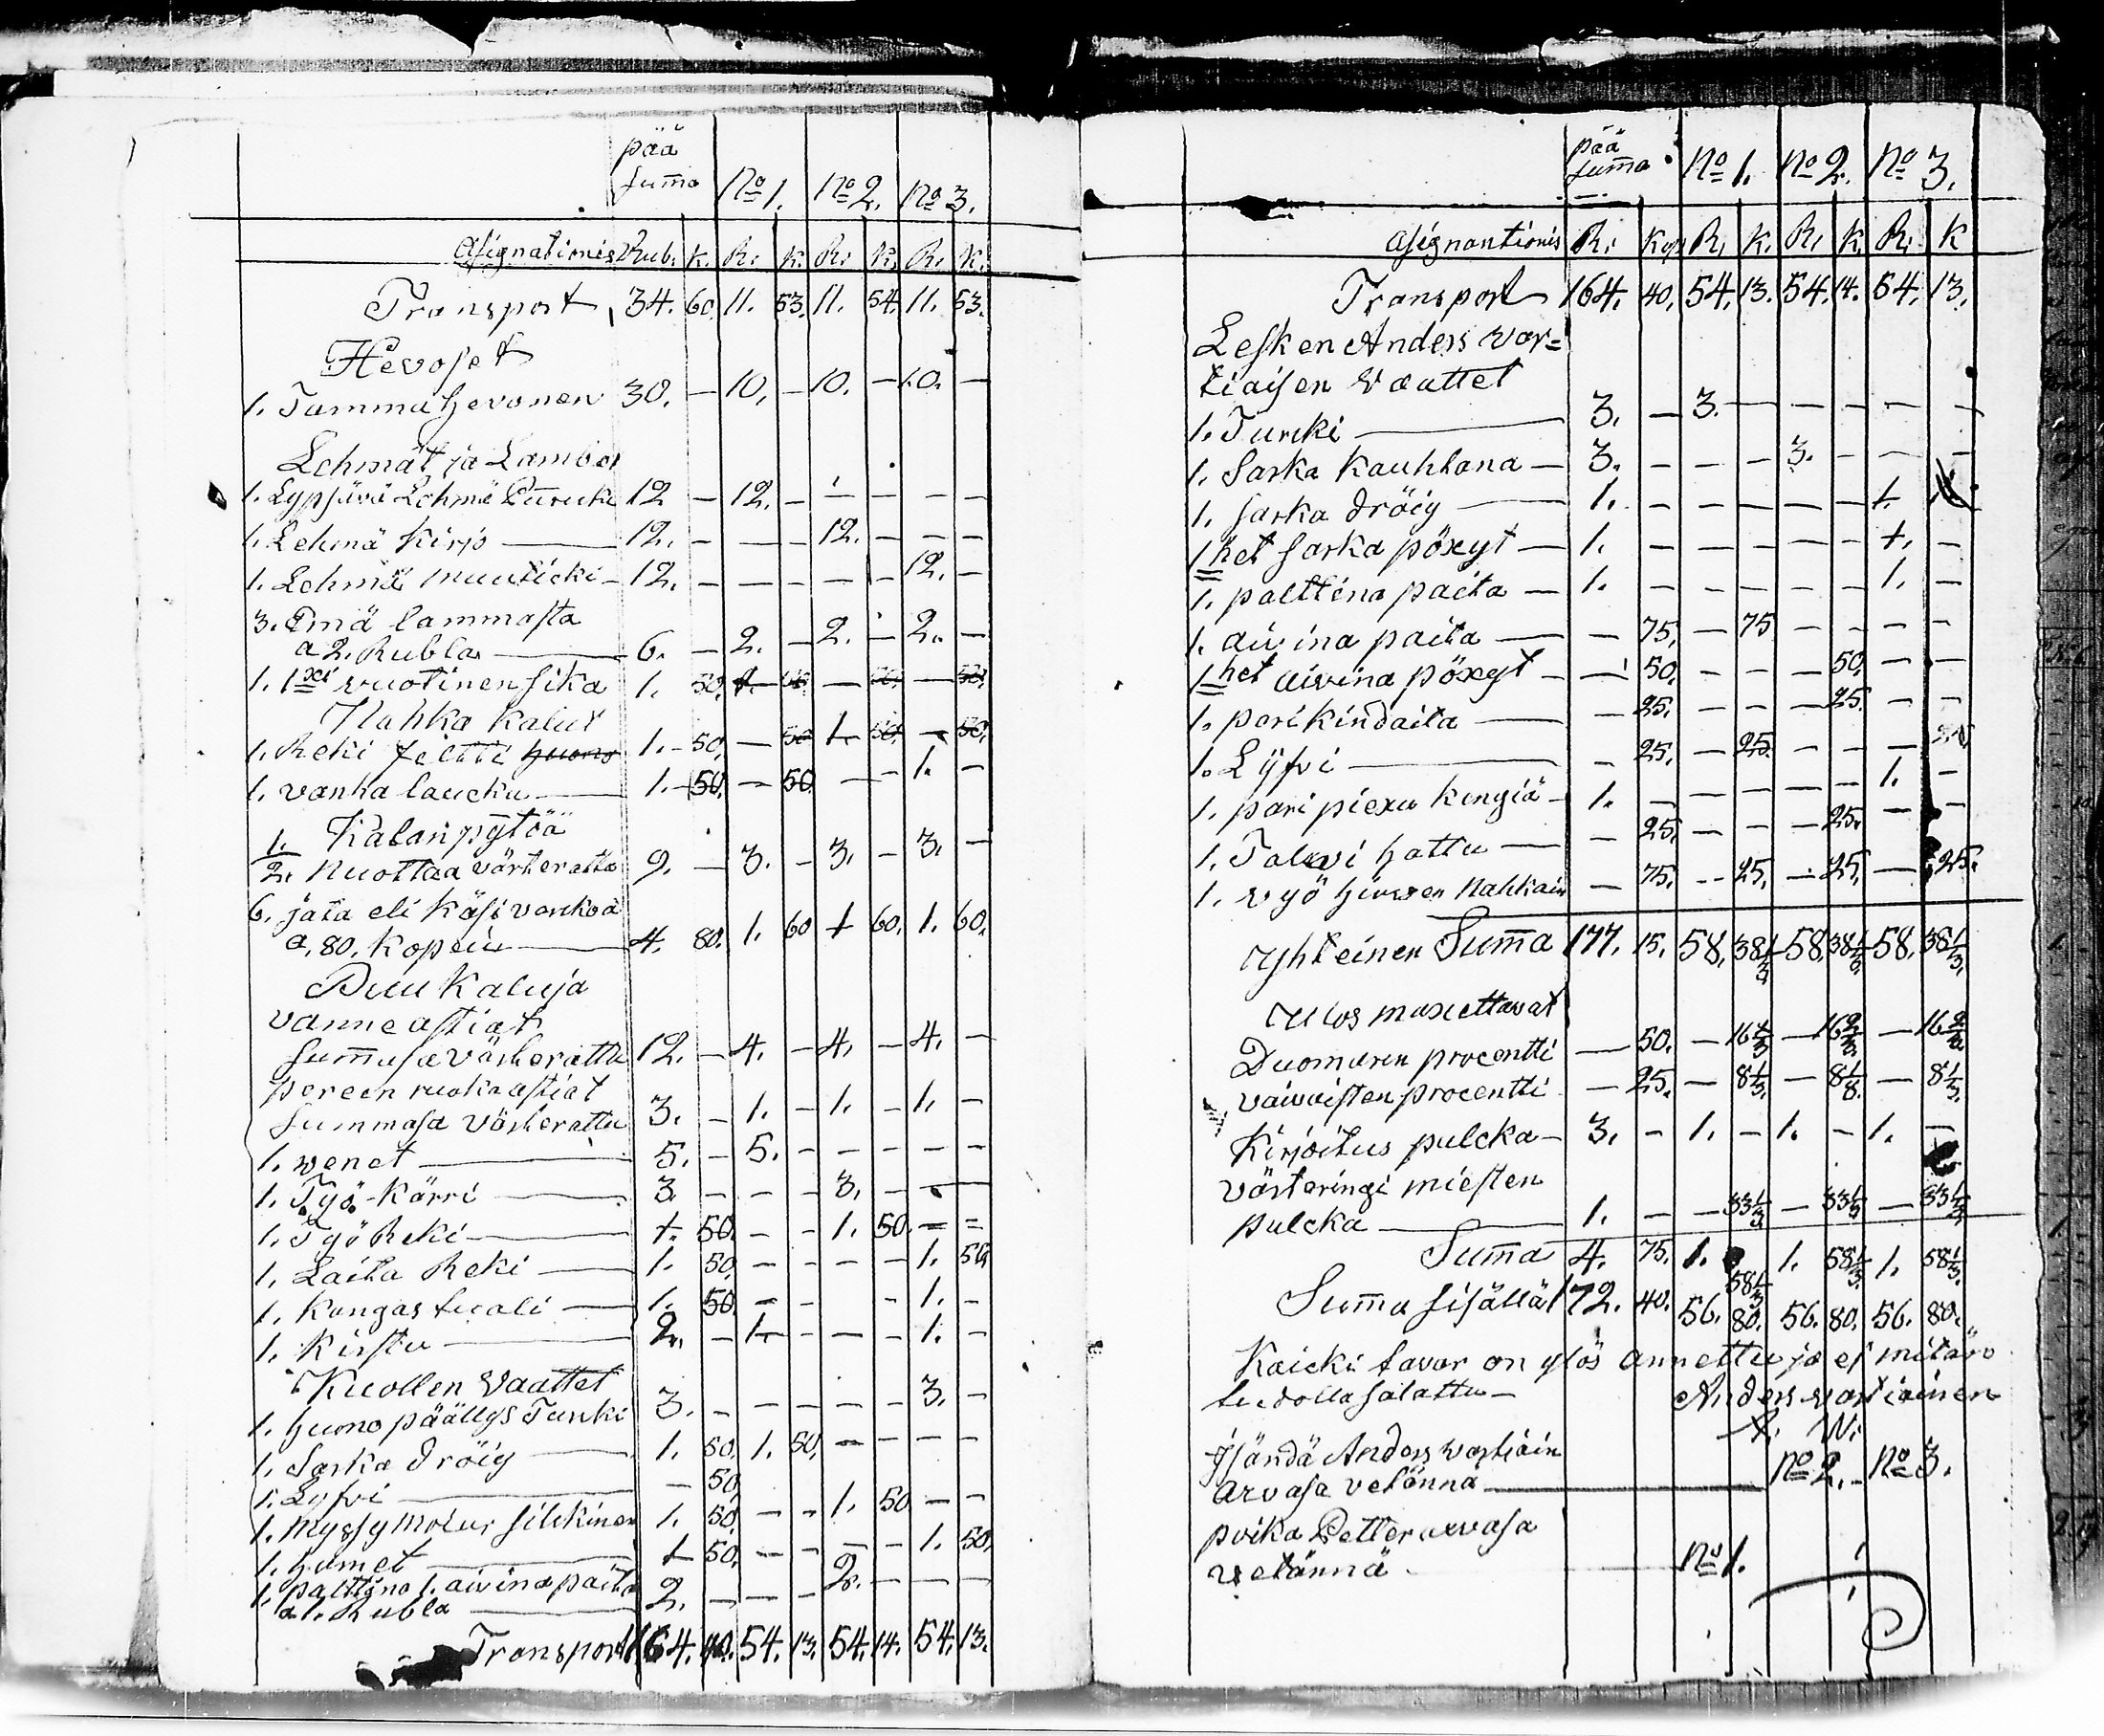 pää
summa Nº 1. Nº 2. Nº 3.
Assignationis Rub. K. R. K. R. K. R. K.
Transport 34. 60. 11. 53. 11. 54. 11. 53.
Hevoset
1. Tamma hevonen 30. — 10. — 10. — 10. —
Lehmät ja Lambat
1. Lypsävä Lehmä 12 — 12. — — — — —
1. Lehmä Kirjo 12. — — — 12. — — —
1. Lehmä muuticki 12. — — — — — 12. —
3. Emä lammasta
a 2. Rubla 6. — 2. — 2. — 2. —
1. 1xi vuotinen sika 1. 50.
Nahka Kalut
1. Reki 1. 50. — 50 1. 50. — 50.
1. vanha laucku 1. 50. — 50. — — 1. —
Kalan pÿtöä
1/2. Nuottaa värterattu 9. — 3. — 3. — 3. —
6. jata eli Käsi varkoa
a. 80. Kopein 4. 80. 1. 60 1. 60. 1. 60.
Puu Kaluja
vanne astiat
summasa värterattu 12. — 4. — 4. — 4. —
pereen ruoka astiat
summasa värterattu 3. — 1. — 1. — 1. —
1. venet 5. — 5. — — — — —
1. Työ-Kärri 3. — — — 3. — — —
1. Työ Reki 1. 50. — — 1. 50. — —
1. Laita Reki 1. 50. — — — — 1. 50.
1. Kangas tuoli 1. 50. — — — 1. —
1. Kirstu 2. — 1. — — — 1. —
Kuollen Vaattet
1. huono päällys Turki 3. — — — — — 3. —
1. Sarka dröig 1. 50. 1. 50. — — — —
1. Lijvi — 50.
1. Myssy silckinen 1. 50. — — 1. 50 — —
1. hamet 1. 50. — — — — 1. 50.
1. palttina 1. aivina paita
a 1. Rubla 2. — — — 2. — — —
Transport 164. 40. 54. 13. 54. 14. 54. 13.
pää
summa Nº 1. Nº 2. Nº 3.
Assignantionis R. Kop R. K. R. K. R. K
Transport 164. 40. 54. 13. 54. 14. 54. 13.
Lesken Anders Var=
tiaisen Vaattet
1. Turcki 3. — 3. — — — — —
1. Sarka Kauhtana 3. — — — 3. — — —
1. sarka dröig 1. — — — — — 1.
1het sarka pöxyt 1. — — — — — 1. —
1. palttina paita 1. — — — — — 1. —
1. aivina paita — 75. — 75 — — — —
1het aivina pöxyt — 50. — — — 50. — —
1. pari kindaita — 25. — — — 25. — —
1. Lÿfvi — 25. — 25. — — —
1. pari piexu kengiä 1. — — — — — 1. —
1. Talvi hattu — 25. — — — 25. — —
1. vyö Nahkain — 75. — 25. — 25. — 25.
Yhteinen Summa 177. 15. 58. 38 1/3 58. 38 1/3. 58. 38 1/3.
Ulos maxettavat
Duomarin procentti — 50. — 16 2/3 — 16 2/3. — 16 2/3.
vaivaisten procentti — 25. — 8 1/3. — 8 1/3. — 8 1/3.
Kirjoitus palcka 3. — 1. — 1. — 1. —
värteringi miesten
palcka 1. — — 33 1/3 — 33 1/3 — 33 1/3
Summa 4. 75. 1. 58 1/3 1. 58 1/3. 1. 58 1/3.
Summa sisällä 172. 40. 56. 80. 56. 80. 56. 80.
Kaicki tavar on ylös annettu ja ej mitän
tiedolla salattu — Anders vartiainen
A. W.
Isändä Anders vartiain
arvasa vetännä Nº 2. Nº 3.
poika Petter arvasa
vetännä Nº 1.